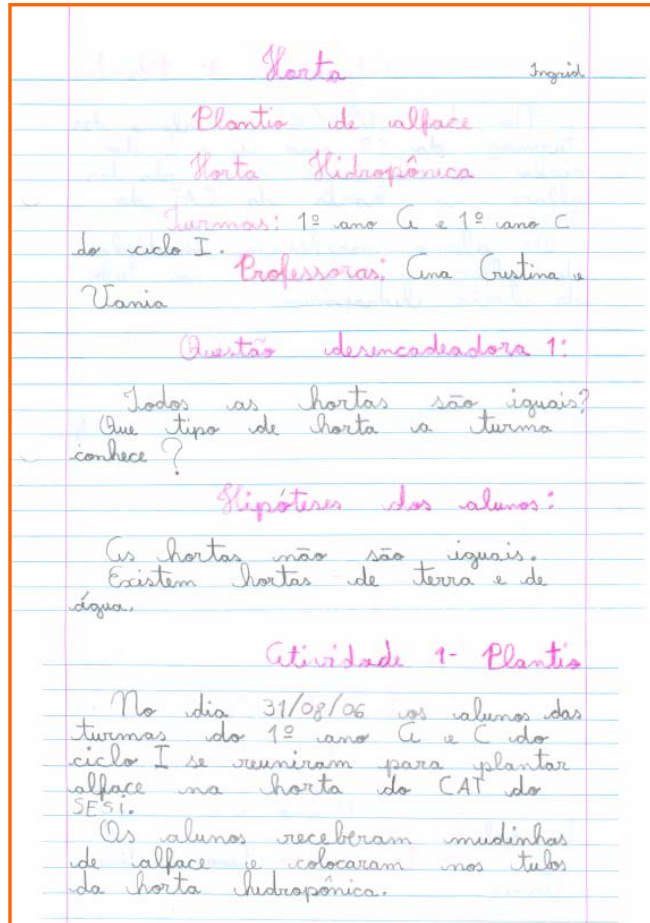 Horta Ingrid
Plantio de alface
Horta Hidropônica
Turmas: 1º ano A e 1º ano C
do ciclo I.
Professoras: Ana Cristina e
Vania
Questão desencadeadora 1:
Todos as hortas são iguais?
Que tipo de horta a turma
conhece?
Hipóteses dos alunos:
As hortas não são iguais.
Existem hortas de terra e de
água.
Atividade 1- Plantio
No dia 31/08/06 os alunos das
turmas do 1º ano A e C do
ciclo I se reuniram para plantar
alface na horta do CAT do
SESI.
Os alunos receberam mudinhas
de alface e colocaram nos tulos
da horta hidropônica.